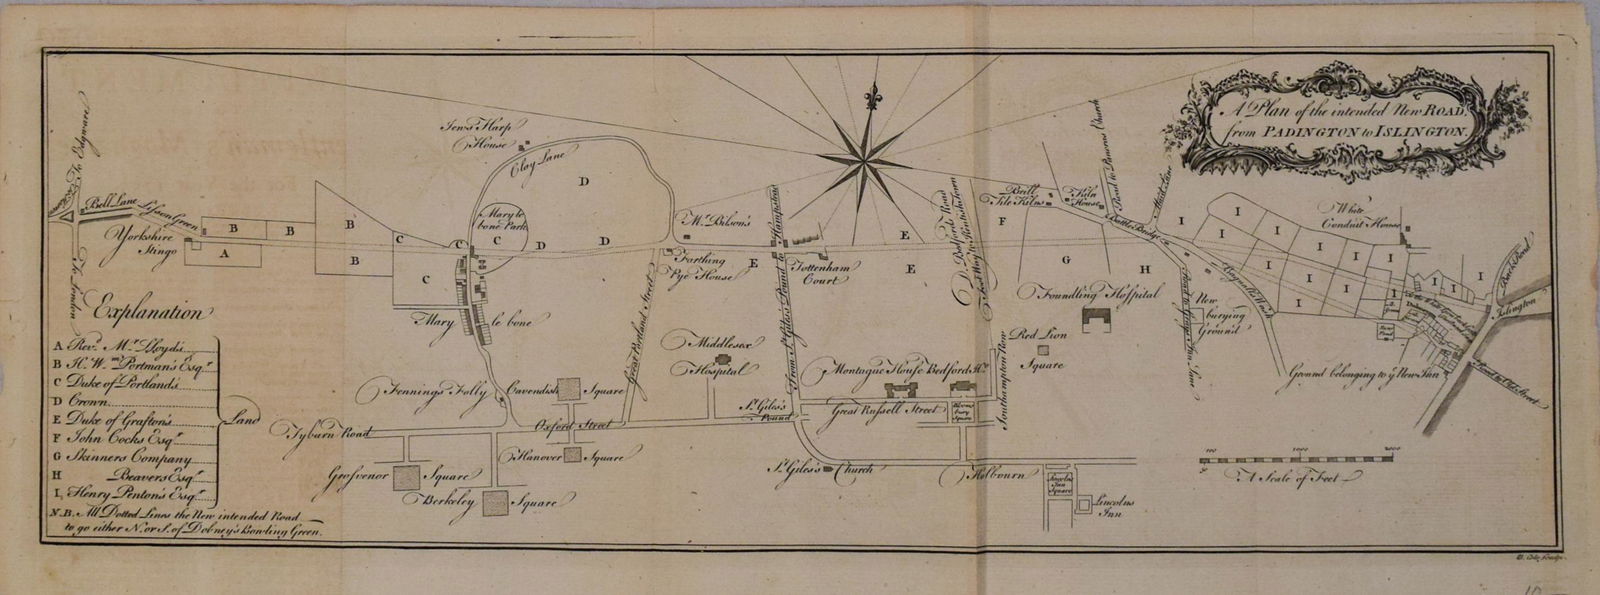 A Plan of the intended New ROAD,
from PADINGTON to ISLINGTON.
To Edgware
Bell Lane
Lisson Green
Yorkshire
Stingo
To London
B
B
B
B
A
Jews Harp
House
Clay Lane
D
Marylebone Park
C
C
C
C
D
D
Mary le bone
Mr. Bilson's
Farthing
Pye House
E
Tottenham
Court
From St. Giles's Pound to Hampstead
Great Portland Street
E
E
D. Bedford's Road
Foot Way to Kentishtown
F
Brill
Tile Kilns
Kiln
House
Road to Pancras Church
Battle Bridge
Maid Lane
G
H
Foundling Hospital
Road to Grays Inn Lane
New
burying
Ground
Bagnigge Wash
I
I
I
I
I
I
I
I
I
I
I
I
I
I
White
Conduit House
Back Road
Islington
Road to Old Street
Ground belonging to ye New Inn
Red Lion
Square
Middlesex
Hospital
Montague House
Bedford He.
Great Russell Street
Bloomsbury
Square
Southampton Row
Fennings Folly
Cavendish Square
St. Giles's
Pound
Tyburn Road
Oxford Street
Hanover Square
Grosvenor Square
Berkeley Square
St. Giles's Church
Holbourn
Lincolns
Inn
Square
Lincolns
Inn
Explanation
A Revd. Mr. Lloyd's
B H. Wm. Portman's Esqr.
C Duke of Portlands
D Crown
E Duke of Grafton's
F John Cocks Esqr.
G Skinners Company
H Beavers Esqr.
I, Henry Penton's Esqr.
Land
N.B. All Dotted Lines the New intended Road
to go either N. or S. of Dobney's Bowling Green.
A Scale of Feet
B. Cole Sculp.